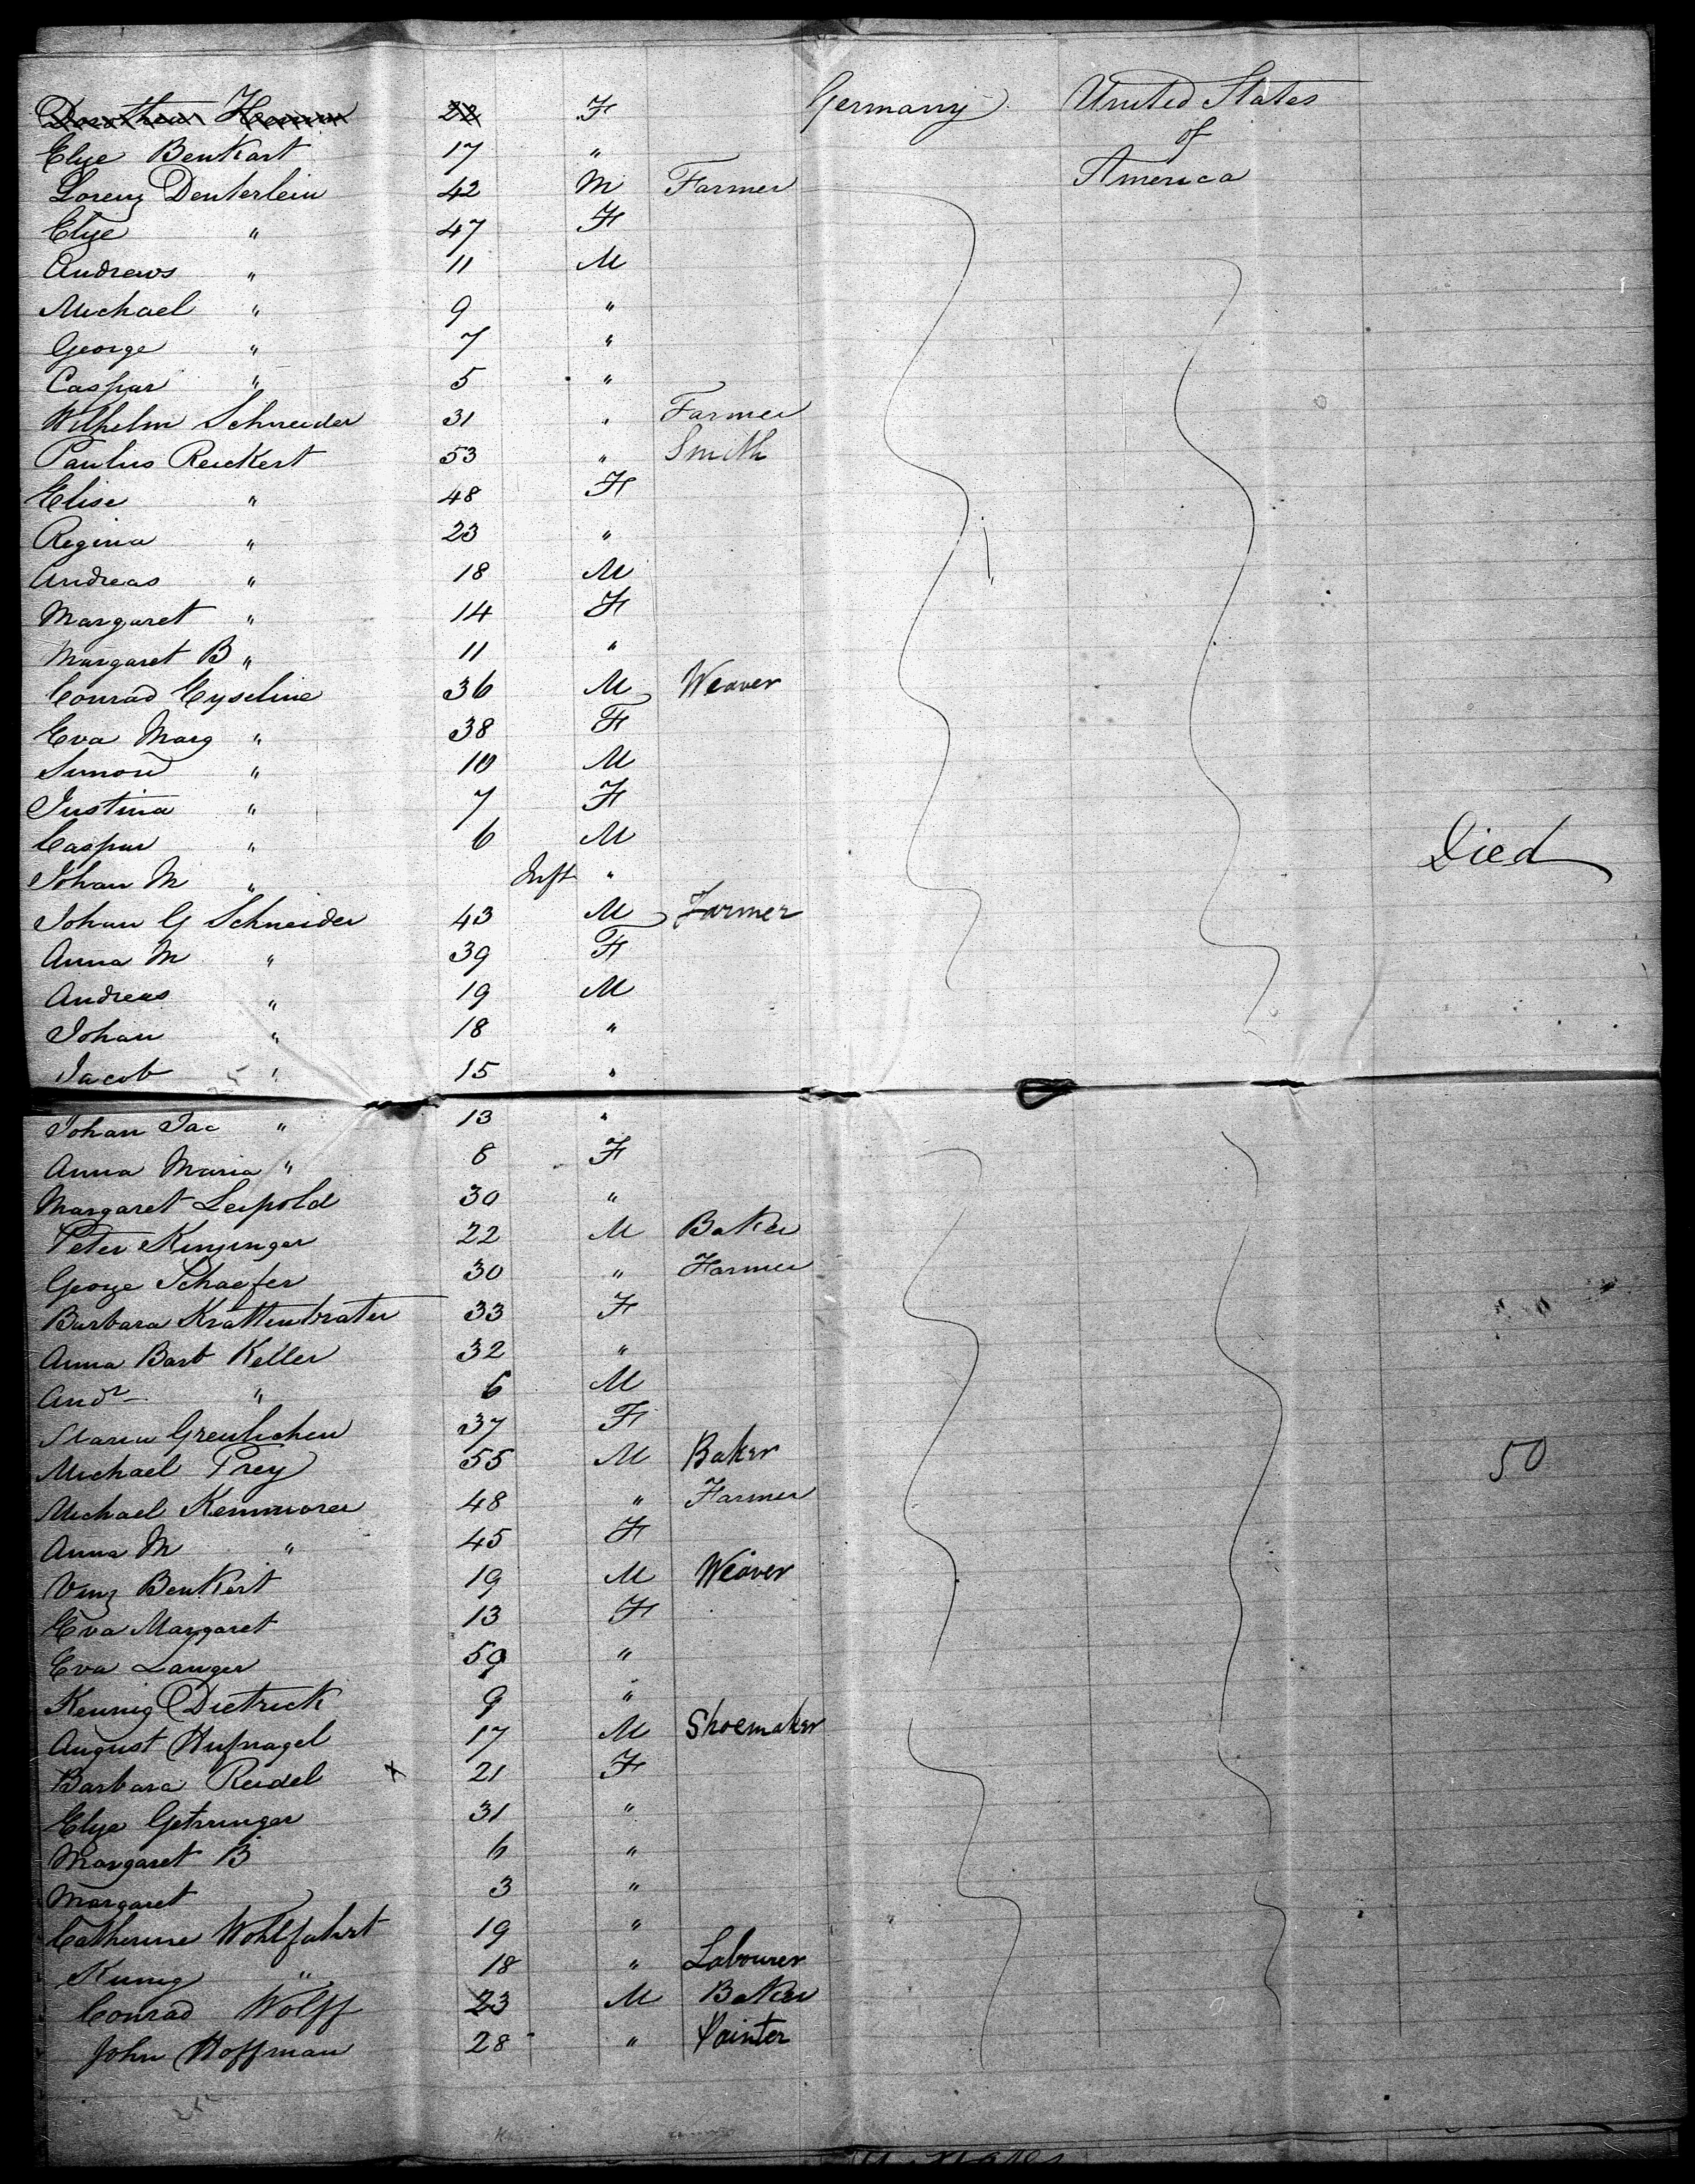 Dorothea 22 F Germany United States
of
Elise Benkart 17 "
Lorenz Denterlein 42 M Farmer America
Elise " 47 F
Andrews " 11 M
Michael " 9 "
George " 7 "
Caspar " 5 "
Wilhelm Schneider 31 " Farmer
Paulus Reickert 53 " Smith
Elise " 48 F
Regina " 23 "
Andreas " 18 M
Margaret " 14 F
Margaret B " 11 "
Conrad Cyseline 36 M Weaver
Eva Marg " 38 F
Simon " 10 M
Justina " 7 F
Caspar " 6 M
Johan M " Inft " Died
Johan G Schneider 43 M Farmer
Anna M " 39 F
Andreas " 19 M
Johan " 18 "
Jacob " 15 "
Johan Jac " 13 "
Anna Maria " 8 F
Margaret Leipold 30 "
Peter Kinzinger 22 M Baker
George Schaefer 30 " Farmer
Barbara Krattenbrater 33 F
Anna Barb Keller 32 "
Andr " 6 M
Maria Greulichen 37 F
Michael Prey 55 M Baker 50
Michael Kemmorer 48 " Farmer
Anna M " 45 F
Vinz Benkert 19 M Weaver
Eva Margaret 13 F
Eva Langer 59 "
Kennig Dietrick 9 "
August Hufnagel 17 M Shoemaker
Barbara Reidel x 21 F
Elise Getzringer 31 "
Margaret B 6 "
Margaret 3 "
Catherine Wohlfahrt 19 "
Kunig " 18 " Labourer
Conrad Wolff 23 M Baker
John Hoffman 28 " Painter